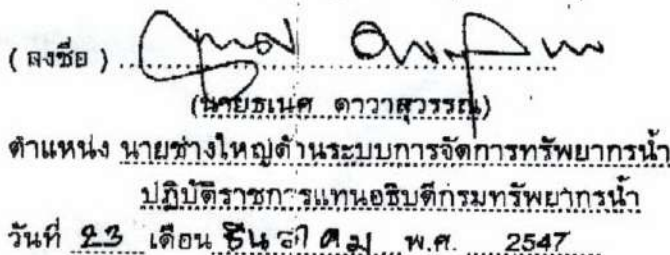 (ลงชื่อ)
(นายธเนศ ดาวาสุวรรณ)
ตำแหน่ง นายช่างใหญ่ด้านระบบการจัดการทรัพยากรน้ำ
ปฏิบัติราชการแทนอธิบดีกรมทรัพยากรน้ำ
วันที่ 23 เดือน ธันวาคม พ.ศ. 2547